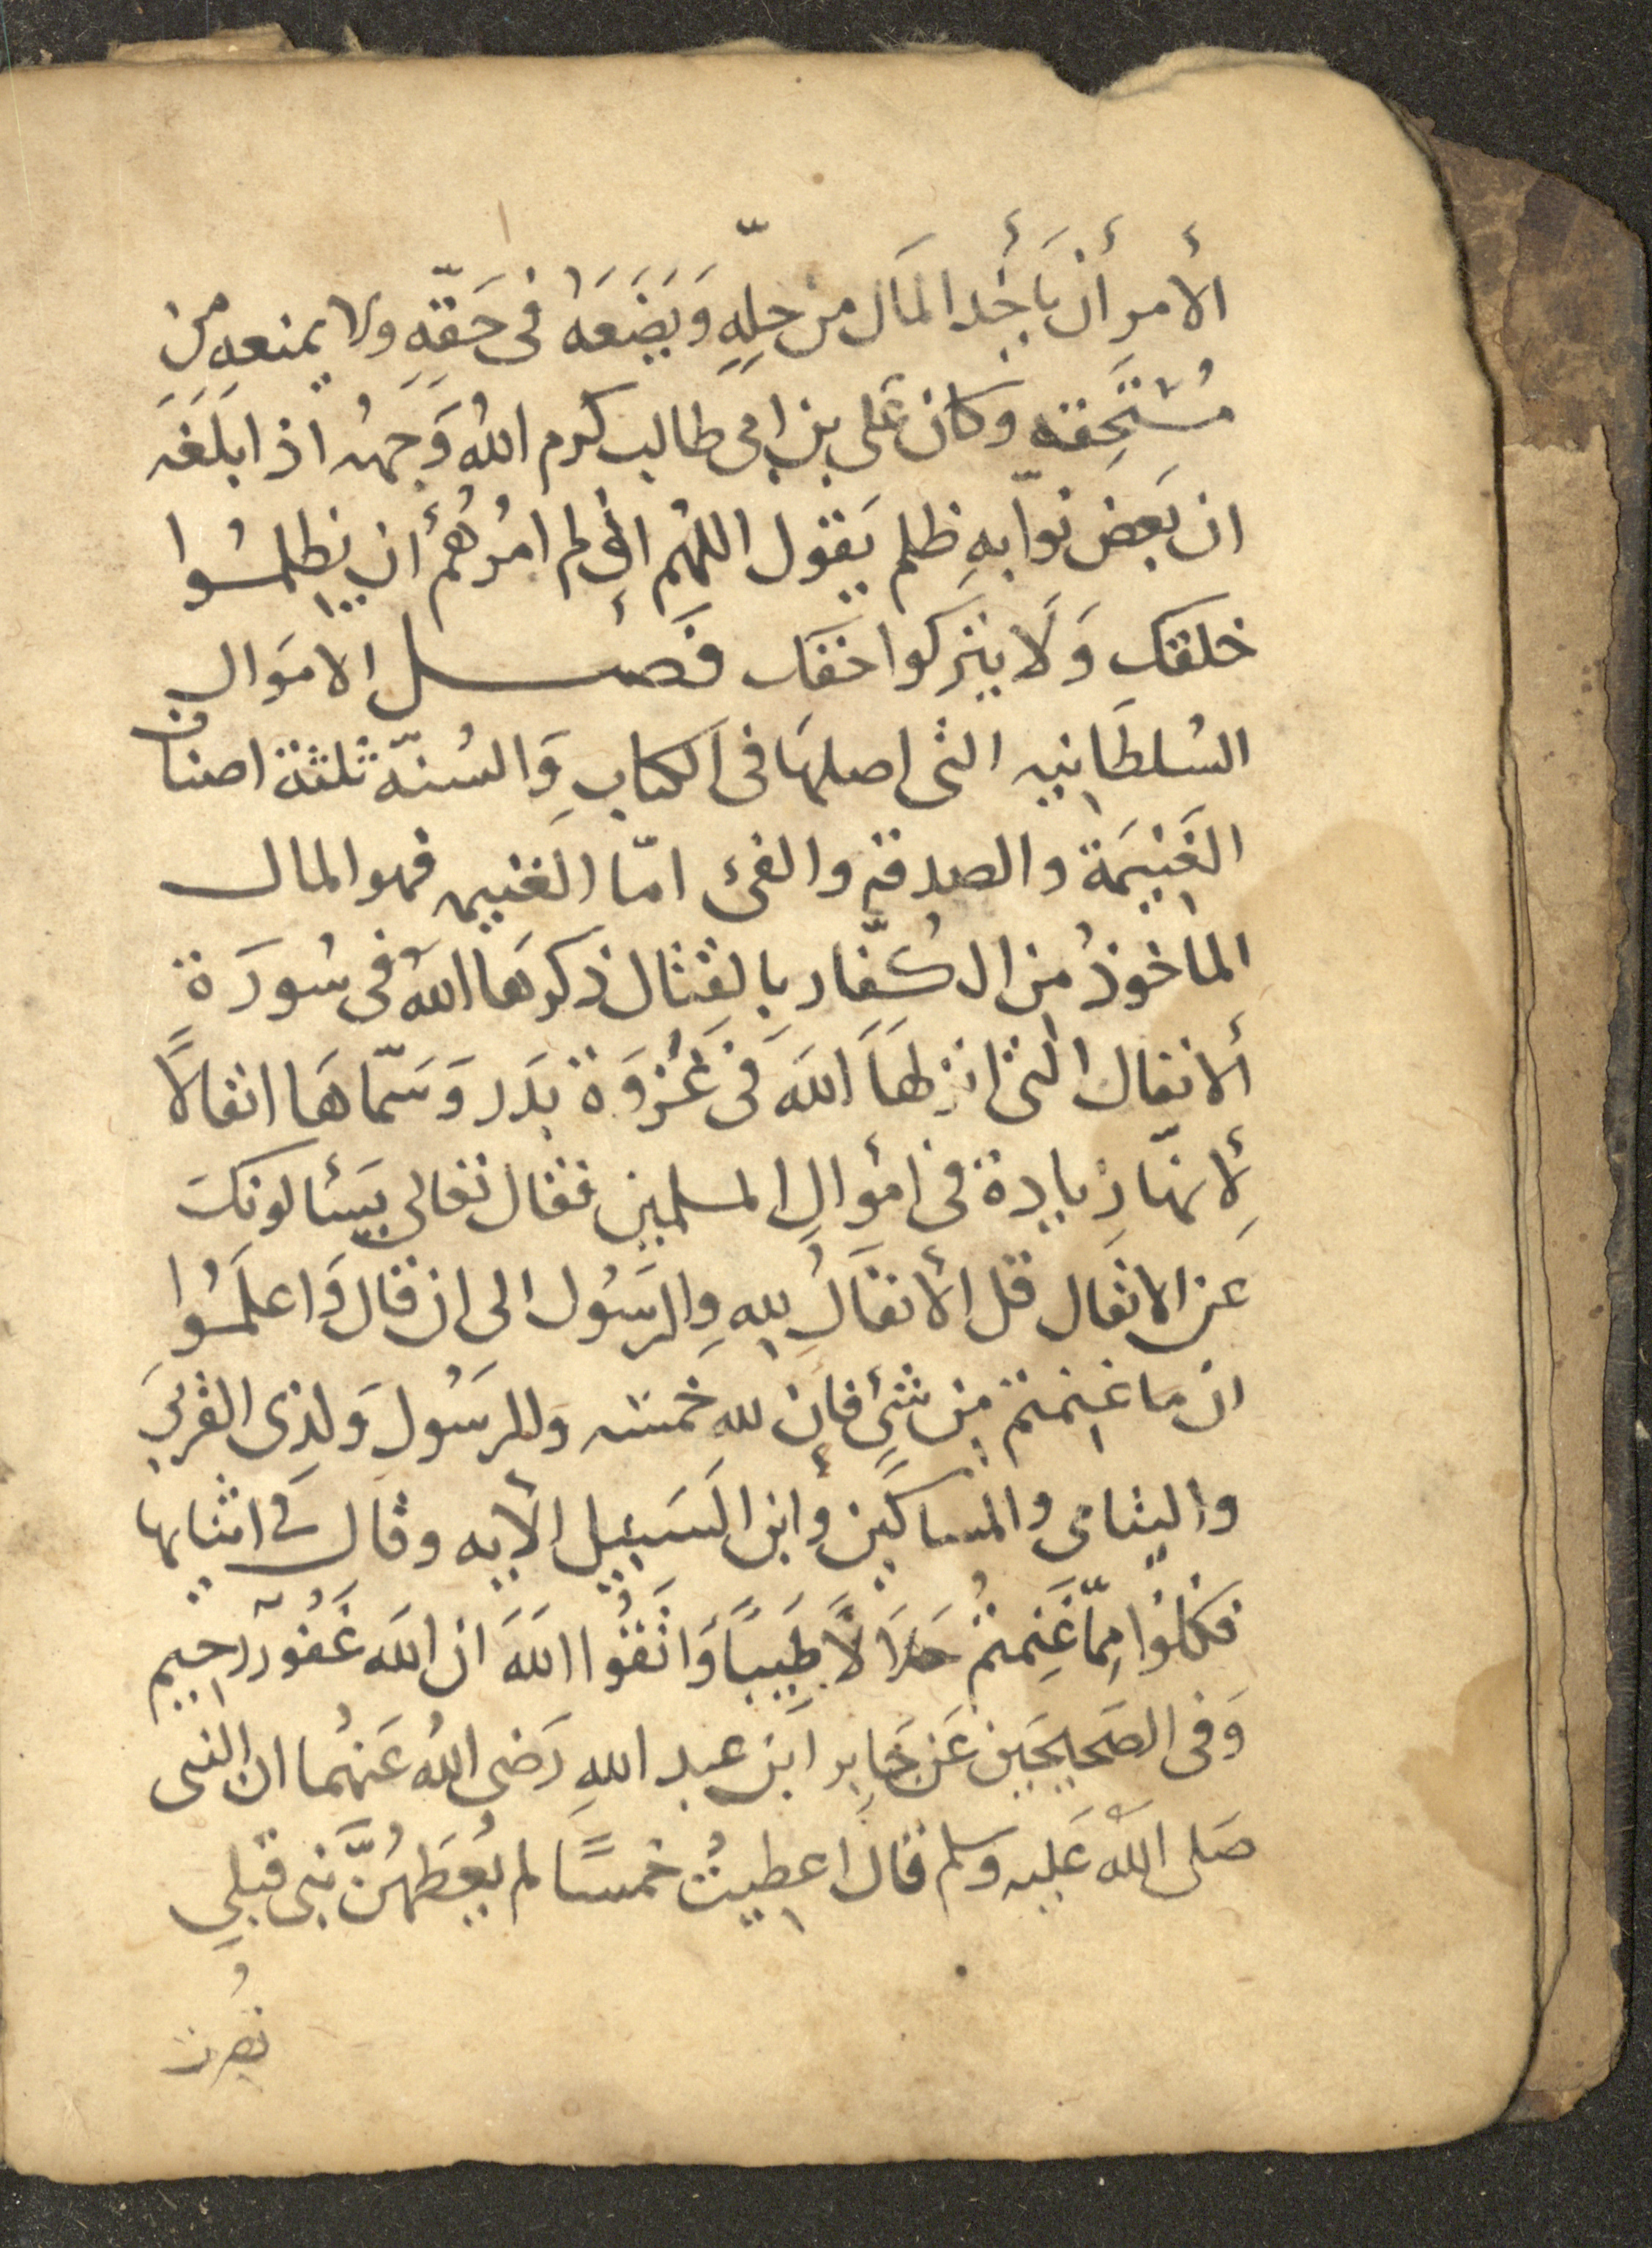 الأمر أن يأخد المال من حلّه ويضعه فى حقّه ولا يمنعه من
مستحقه وكان على بن ابى طالب كرم الله وجهه اذا بلغه
ان بعض نوّابه ظلم يقول اللهم انى لم امرهم أن يظلموا
خلقك ولا يتركوا حقك فصل الاموال
السلطانيه التى اصلها فى الكتاب والسنّة ثلثة اصناف
الغنيمة والصدقه والفئ امّا الغنيمه فهو المال
المأخوذ من الكفّار بالقتال ذكرها الله فى سورة
ألانفال التى انزلها الله فى غزوة بدر وسمّاها انفالًا
لأنهّا زيادة فى أموال المسلمين فقال تعالى يسئالونك
عن الانفال قل الأنفال لله والرسول الى ان قال واعلموا
ان ما غنمتم من شئ فأن لله خمسه وللرسول ولذى القربى
واليتامى والمساكين وأبن السبيل الأيه وقال فى اثنايها
فكلوا ممّا غنمتم حلالًا طيبًا واتقوا الله ان الله غفور رحيم
وفى الصحيحين عن جابر ابن عبد الله رضى الله عنهما ان النبى
صلى الله عليه وسلم قال اعطيت خمسًا لم يعطهنّ نبى قبلى
نصرت